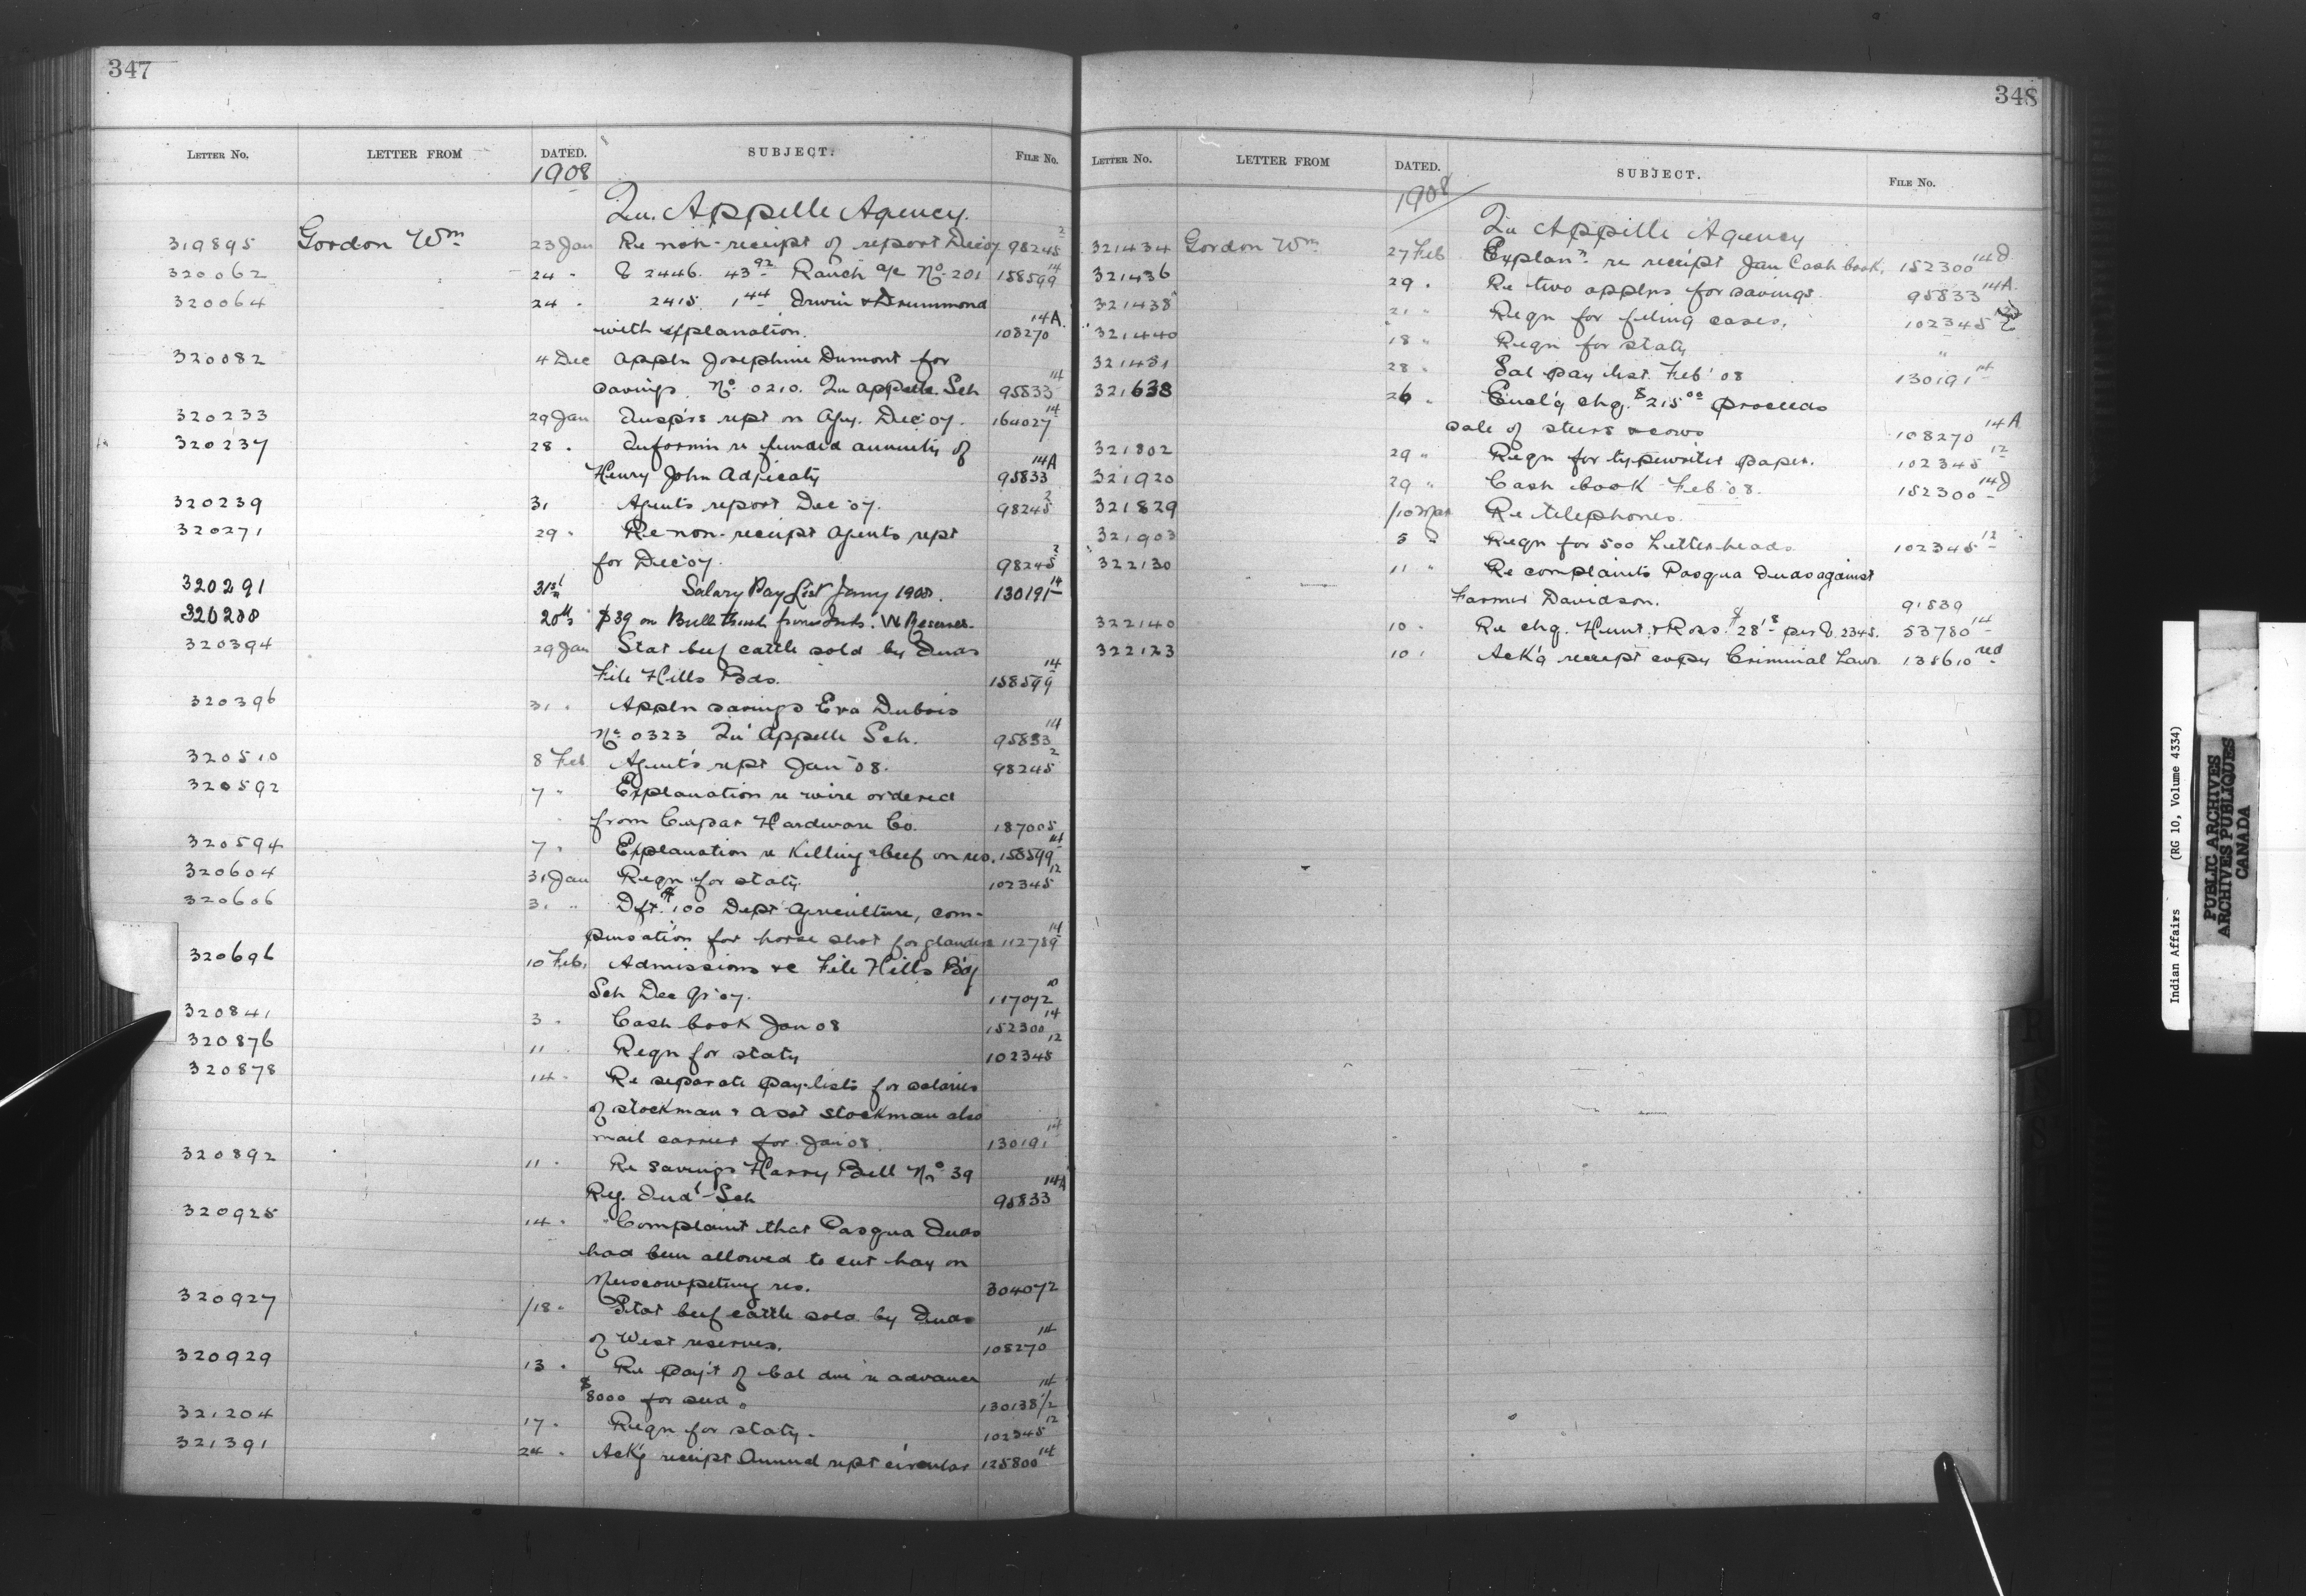 347
LETTER NO. LETTER FROM DATED. SUBJECT. FILE No.
1908
Qu. Appelle Agency.
319895 Gordon Wm 23 Jan Re non-receipt of report Dec 07 98245 2
320062 24 " 2446. 43 92 Ranch a/c No. 201 158599 14
320064 24 " 2415 1 44 Irwin & Drummond
with explanation. 108270 14A
320082 4 Dec Appln Josephine Dumont for
savings. No. 0210. Qu appelle Sch 95833 14
320233 29 Jan Insp's rept on Agy. Dec '07. 164027 14
320237 28 " Informn re funded annuity of
Henry John 95833 14A
320239 31 Agents report Dec '07. 98245 2
320271 29 " Re non-receipt Agents rept
for Dec '07. 98245 2
320291 31st Salary Pay List Jany 1908. 130191 14
320288 20th $39 on Bull
320394 29 Jan Stat beef cattle sold by Inds
File Hills Bds. 158599 14
320396 31 " Appln savings Eva Dubois
No. 0323 Qu' Appelle Sch. 95833 14
320510 8 Feb Agent's rept Jan '08. 98245 2
320592 7 " Explanation re wire ordered
from Cupar Hardware Co. 187005
320594 7 " Explanation re killing beef on res. 158599 14
320604 31 Jan Reqn for staty. 102345 12
320606 31 " Dft. $100 Dept Agriculture, com-
pensation for horse shot for glanders 112789 14
320696 10 Feb. Admissions &c File Hills B'dg
Sch Dec Qr '07. 117072 10
320841 3 " Cash book Jan 08 152300 14
320876 11 " Reqn for staty 102345 12
320878 14 " Re separate pay-lists for salaries
of stockman & asst stockman also
mail carrier for Jan 08. 130191 14
320892 11 " Re savings Harry Bell No. 39
Reg. Ind'l Sch 95833 14A
320925 14 " Complaint that Pasqua Inds
had been allowed to cut hay on
Muscowpetung res. 304072
320927 /18 " Stat beef cattle sold by Inds
of West reserves. 108270 14
320929 13 " Re pay't of bal due re advance
$8000 for seed. 130138 1/2 14
321204 17 " Reqn for staty. 102345 12
321391 24 " Ack'g receipt Annual rept circular 125800 14
348
LETTER NO. LETTER FROM DATED. SUBJECT. FILE No.
1908
Qu Appelle Agency
321434 Gordon Wm 27 Feb Explann re receipt Jan Cash book. 152300 14d
321436 29 " Re two applns for savings. 95833 14A.
321438 21 " Reqn for filing cases. 102345
321440 18 " Reqn for staty "
321451 28 " Sal pay list Feb' 08 130191 14
321638 26 " Encl'g chq. $215 00 proceeds
sale of steers & cows 108270 14A
321802 29 " Reqn for typewriter paper. 102345 12
321920 29 " Cash book Feb '08. 152300 14d
321829 /10 Mar Re telephones.
321903 5 " Reqn for 500 Letterheads. 102345 12
322130 11 " Re complaints Pasqua Inds against
Farmer Davidson. 91839
322140 10 " Re chq. Hunt & Ross. $28 15 per V. 2345. 53780 14
322123 10 " Ack'g receipt copy Criminal Laws 138610 red
Indian Affairs (RG 10, Volume 4334)
PUBLIC ARCHIVES
ARCHIVES PUBLIQUES
CANADA